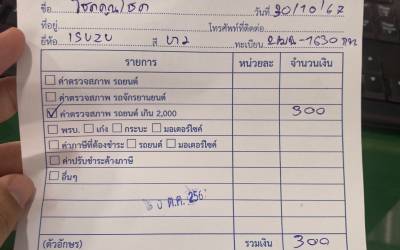 ชื่อ โชคคูณโชค วันที่ 30/10/67
ที่อยู่ โทรศัพท์ที่ติดต่อ
ยี่ห้อ ISUZU สี ขาว ทะเบียน -1630
รายการ หน่วยละ จำนวนเงิน
ค่าตรวจสภาพ รถยนต์
ค่าตรวจสภาพ รถจักรยานยนต์
ค่าตรวจสภาพ รถยนต์ เกิน 2,000 300
พรบ. เก๋ง กระบะ มอเตอร์ไซค์
ค่าภาษีที่ต้องชำระ รถยนต์ มอเตอร์ไซค์
ค่าปรับชำระล่าภาษี
อื่นๆ
ต.ค. 256
(ตัวอักษร) รวมเงิน 300